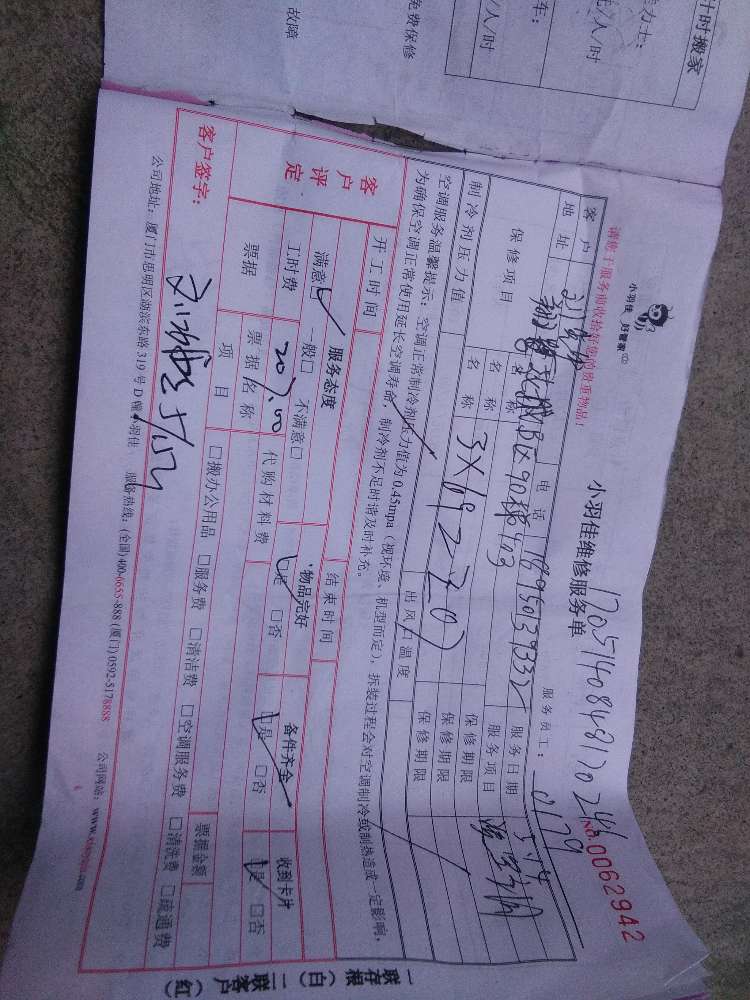 计时搬家
元/人/时
力士：
/人/时
车：
免费保修
故障
小羽佳 好管家
请您于服务前收拾好您的贵重物品！
小羽佳维修服务单
No.0062942
服务员工：
0179
客户
地址
B区90梯403
电话
服务日期
保修项目
名称
服务项目
名称
保修期限
名称
3×69=207
保修期限
制冷剂压力值
出风口温度
保修期限
空调服务温馨提示：空调正常制冷剂压力值为0.45mpa（视环境、机型而定），拆装过程会对空调制冷或制热造成一定影响，
为确保空调正常使用延长空调寿命，制冷剂不足时请及时补充。
开工时间
结束时间
客户评定
服务态度
物品完好
备件齐全
收到卡片
满意□ 一般□ 不满意□
□是 □否
□是 □否
□是 □否
工时费
207.00
代购材料费
票据
票据名称
票据金额
项目
□搬办公用品 □服务费 □清洁费 □空调服务费 □清洗费 □疏通费
客户签字：
5/15
公司地址：厦门市思明区湖滨东路319号D幢小羽佳
服务热线：(全国)400-0655-888 (厦门)0592-5178888
公司网站：www.
一联存根（白） 二联客户（红）